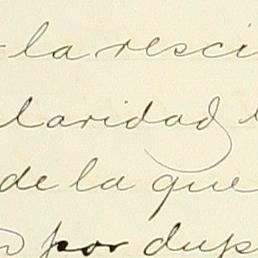 la resci
laridad
de la que
por dup